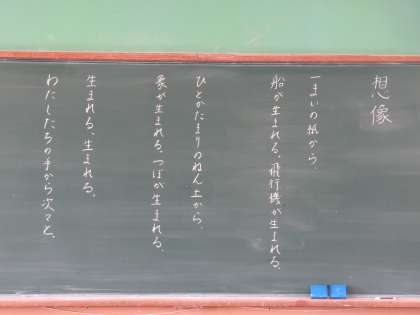 想像
一まいの紙から、
船が生まれる、飛行機が生まれる、
ひとかたまりのねん土から、
象が生まれる、つぼが生まれる、
生まれる、生まれる、
わたしたちの手から次々と、